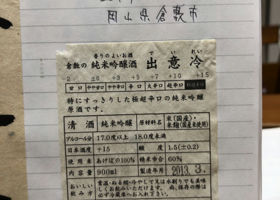 岡山県倉敷市
香りのよいお酒
でいれい
倉敷の 純米吟醸酒 出意冷
-2 ±0 +3 +5 +7 +10 +15
甘口 やや甘口 やや辛口 辛口 大辛口 超辛口
特にすっきりした極超辛口の純米吟醸
原酒です。
清酒 純米吟醸 原材料名 米(国産)・米麹(国産米使用)
アルコール分 17.0度以上 18.0度未満
日本酒度 +15 酸度 1.5(±0.2)
使用米 あけぼの100% 精米歩合 60%
内容量 900ml 製造年月 2013.3.
おいしい飲み方